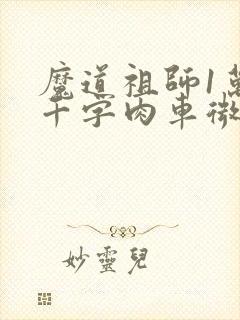 魔道祖師1萬
千字肉車微
妙靈兒